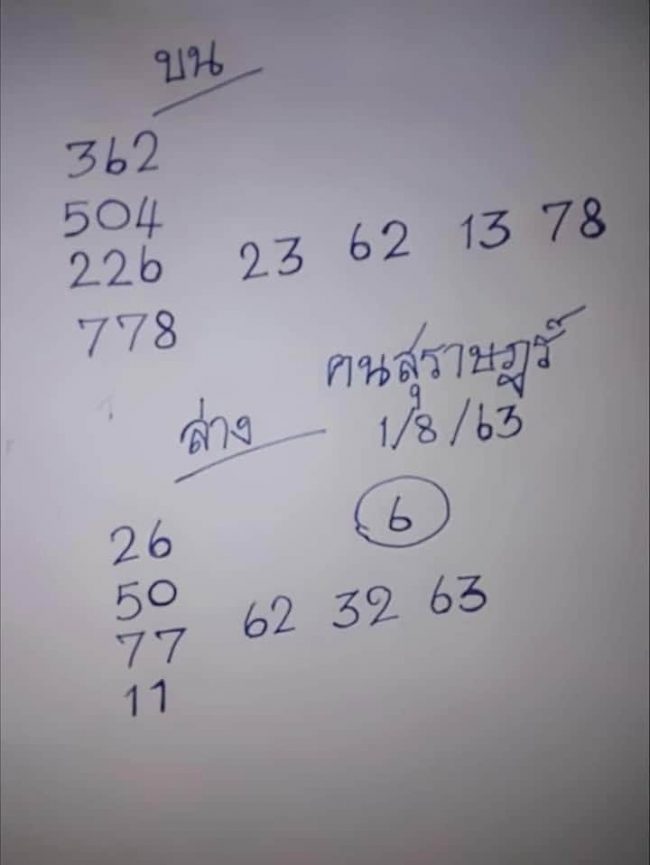 บน
362
504
226 23 62 13 78
778
คนสุราษฎร์
1/8/63
ล่าง
6
26
50 62 32 63
77
11